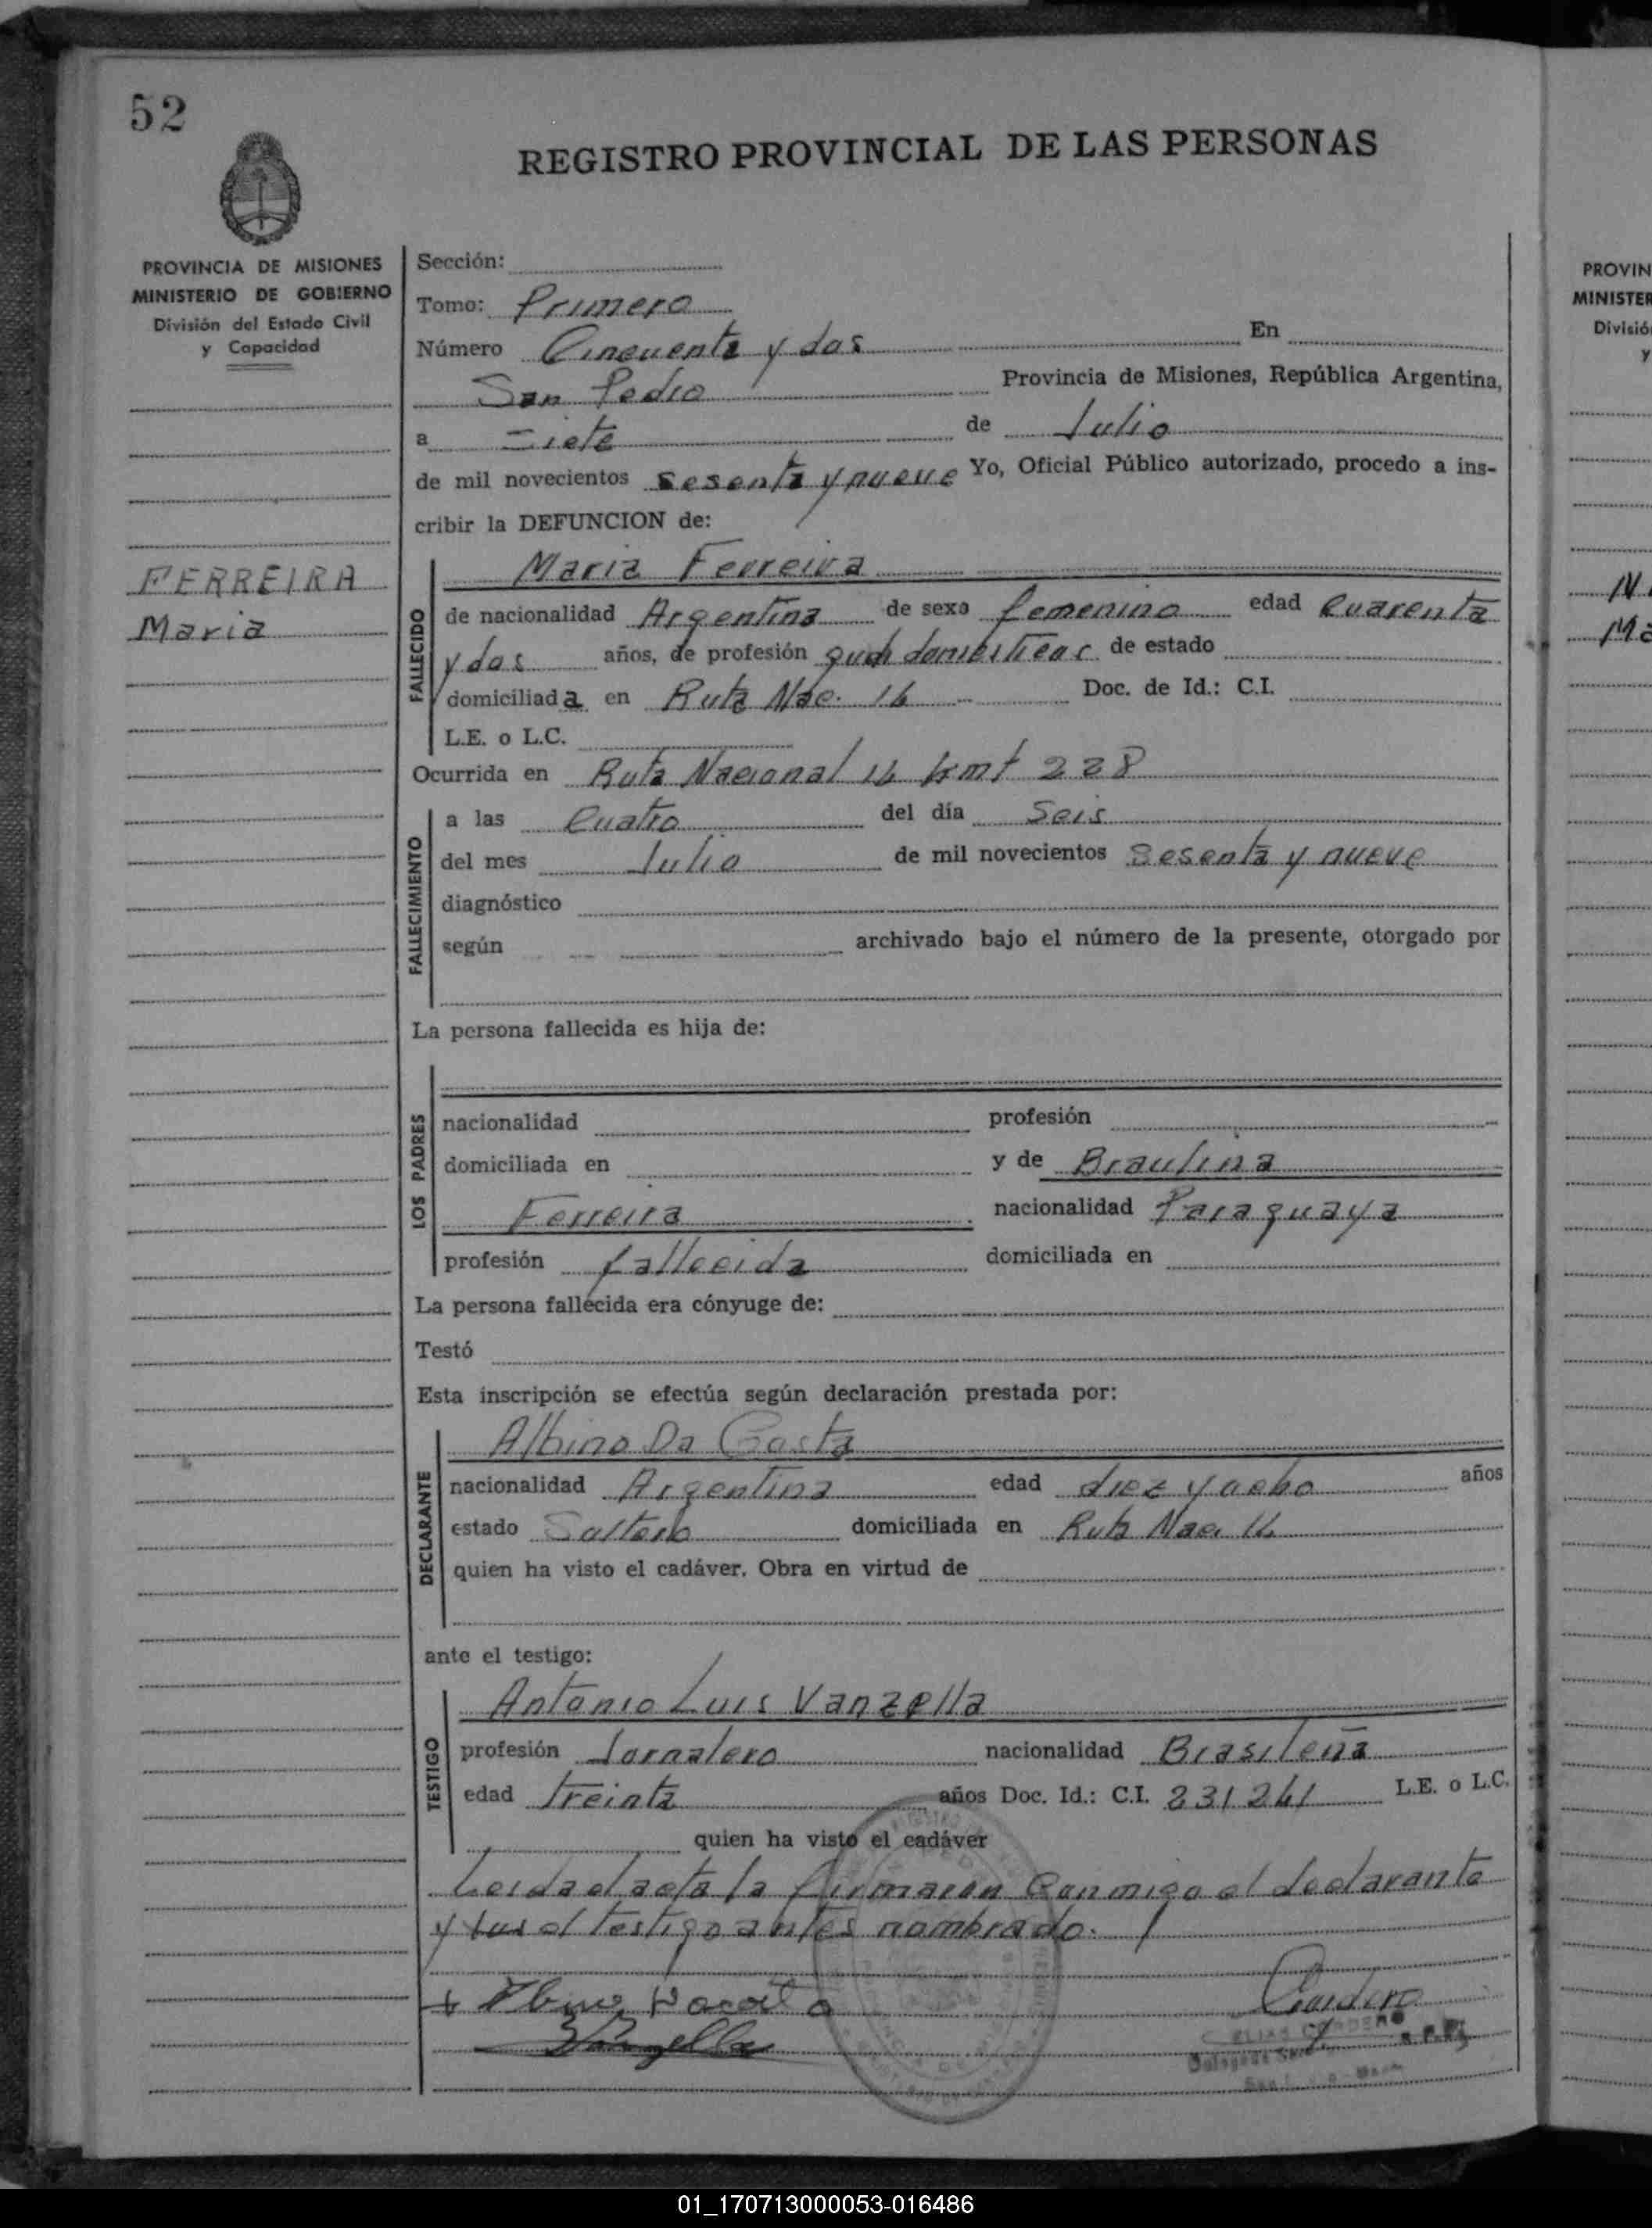 52
REGISTRO PROVINCIAL DE LAS PERSONAS
PROVINCIA DE MISIONES
MINISTERIO DE GOBIERNO
División del Estado Civil
y Capacidad
FERREIRA
Maria
Sección:
Tomo: Primero
Número Cincuenta y dos En
San Pedro Provincia de Misiones, República Argentina,
a Siete de Julio
de mil novecientos sesenta y nueve Yo, Oficial Público autorizado, procedo a ins-
cribir la DEFUNCION de:
FALLECIDO
Maria Ferreira
de nacionalidad Argentina de sexo femenino edad Cuarenta
y dos años, de profesión queh domésticos de estado
domiciliada en Ruta Nac. 14 Doc. de Id.: C.I.
L.E. o L.C.
Ocurrida en Ruta Nacional 14 kmt 228
FALLECIMIENTO
a las Cuatro del día Seis
del mes Julio de mil novecientos Sesenta y nueve
diagnóstico
según archivado bajo el número de la presente, otorgado por
La persona fallecida es hija de:
LOS PADRES
nacionalidad profesión
domiciliada en y de Braulina
Ferreira nacionalidad Paraguaya
profesión fallecida domiciliada en
La persona fallecida era cónyuge de:
Testó
Esta inscripción se efectúa según declaración prestada por:
DECLARANTE
Albino Da Costa
nacionalidad Argentina edad diez y ocho años
estado Soltero domiciliada en Ruta Nac. 14
quien ha visto el cadáver. Obra en virtud de
ante el testigo:
TESTIGO
Antonio Luis Vanzella
profesión Jornalero nacionalidad Brasileña
edad treinta años Doc. Id.: C.I. 231241 L.E. o L.C.
quien ha visto el cadáver
Leida el acta la firmaron Conmigo el declarante
y el testigo antes nombrado.
Vanzella
Cordero
ELIAS CORDERO
PROVIN
MINISTER
Divisió
y
01_170713000053-016486